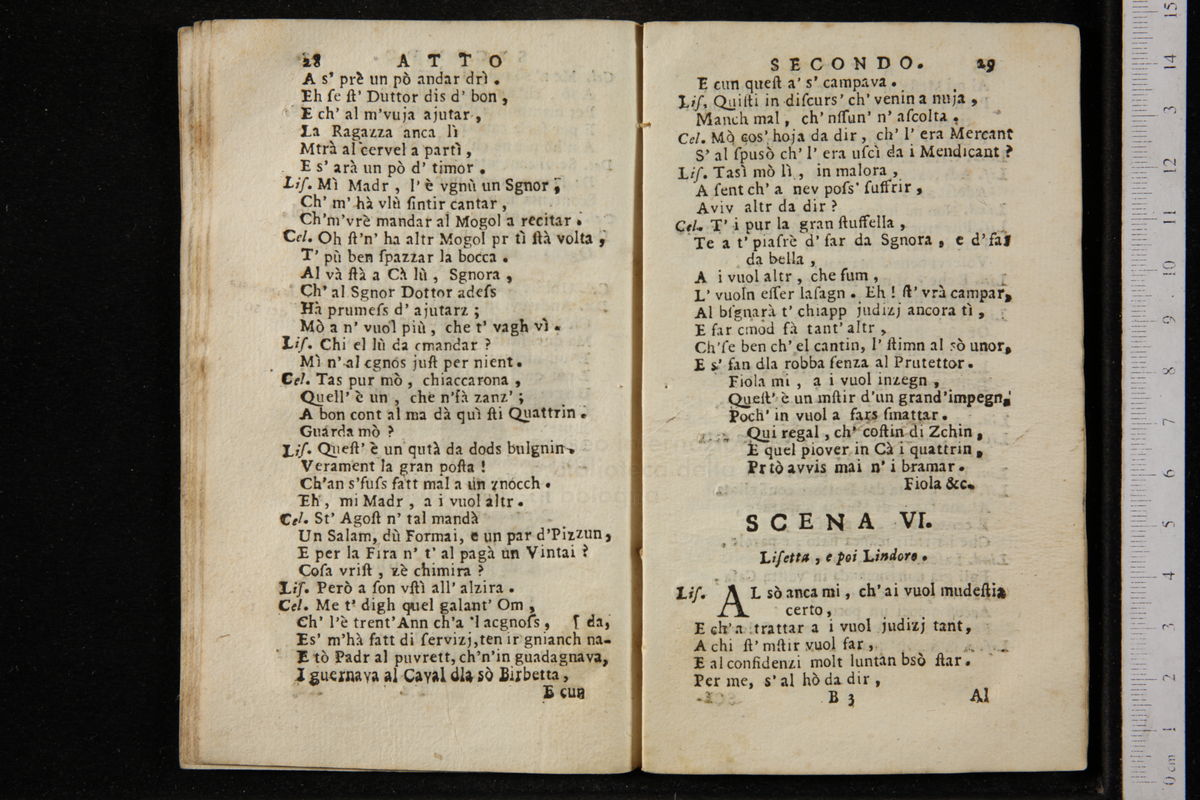 28 ATTO
A s' prè un pò andar drì.
Eh se ſt' Duttor dis d' bon,
E ch' al m'vuja ajutar,
La Ragazza anca lì
Mtrà al cervel a partì,
E s' arà un pò d' timor.
Liſ. Mì Madr, l' è vgnù un Sgnor;
Ch' m' hà vlù ſintir cantar,
Ch'm'vrè mandar al Mogol a recitar.
Cel. Oh ſt'n' ha altr Mogol pr tì ſtà volta,
T' pù ben ſpazzar la bocca.
Al và ſtà a Cà lù, Sgnora,
Ch' al Sgnor Dottor adeſs
Hà prumeſs d' ajutarz;
Mò a n' vuol più, che t' vagh vì.
Liſ. Chi el lù da cmandar?
Mì n' al cgnos juſt per nient.
Cel. Tas pur mò, chiaccarona,
Quell' è un, che n'fà zanz';
A bon cont al ma dà quì ſti Quattrin.
Guarda mò?
Liſ. Queſt' è un qutà da dods bulgnin.
Verament la gran poſta!
Ch'an s'fuſs fatt mal a un znocch.
Eh, mi Madr, a i vuol altr.
Cel. St' Agoſt n' tal mandà
Un Salam, dù Formai, e un par d'Pizzun,
E per la Fira n' t' al pagà un Vintai?
Coſa vriſt, zè chimira?
Liſ. Però a ſon vſtì all' alzira.
Cel. Me t' digh quel galant' Om,
Ch' l'è trent'Ann ch'a 'l acgnoſs, [ da,
Es' m'hà fatt di ſervizj, ten ir gnianch na-
E tò Padr al puvrett, ch'n'in guadagnava,
I guernava al Caval dla sò Birbetta,
E cun
SECONDO. 29
E cun queſt a' s' campava.
Liſ. Quiſti in diſcurs' ch' venin a nuja,
Manch mal, ch' nſſun' n' aſcolta.
Cel. Mò cos' hoja da dir, ch' l' era Mercant
S' al ſpusò ch' l' era uſcì da i Mendicant?
Liſ. Tasì mò lì, in malora,
A ſent ch' a nev poſs' ſuffrir,
Aviv altr da dir?
Cel. T' i pur la gran ſtuffella,
Te a t' piaſrè d' far da Sgnora, e d' far
da bella,
A i vuol altr, che fum,
L' vuoln eſſer laſagn. Eh! ſt' vrà campar,
Al bſgnarà t' chiapp judizj ancora tì,
E far cmod fà tant' altr,
Ch'ſe ben ch' el cantin, l' ſtimn al sò unor,
E s' fan dla robba ſenza al Prutettor.
Fiola mi, a i vuol inzegn,
Queſt' è un mſtir d'un grand'impegn,
Poch' in vuol a fars ſmattar.
Qui regal, ch' coſtin di Zchin,
E quel piover in Cà i quattrin,
Pr tò avvis mai n' i bramar.
Fiola &c.
SCENA VI.
Liſetta, e poi Lindoro.
Liſ. AL sò anca mi, ch' ai vuol mudeſtia
certo,
E ch'a trattar a i vuol judizj tant,
A chi ſt' mſtir vuol far,
E al confidenzi molt luntan bsò ſtar.
Per me, s' al hò da dir,
B 3 Al